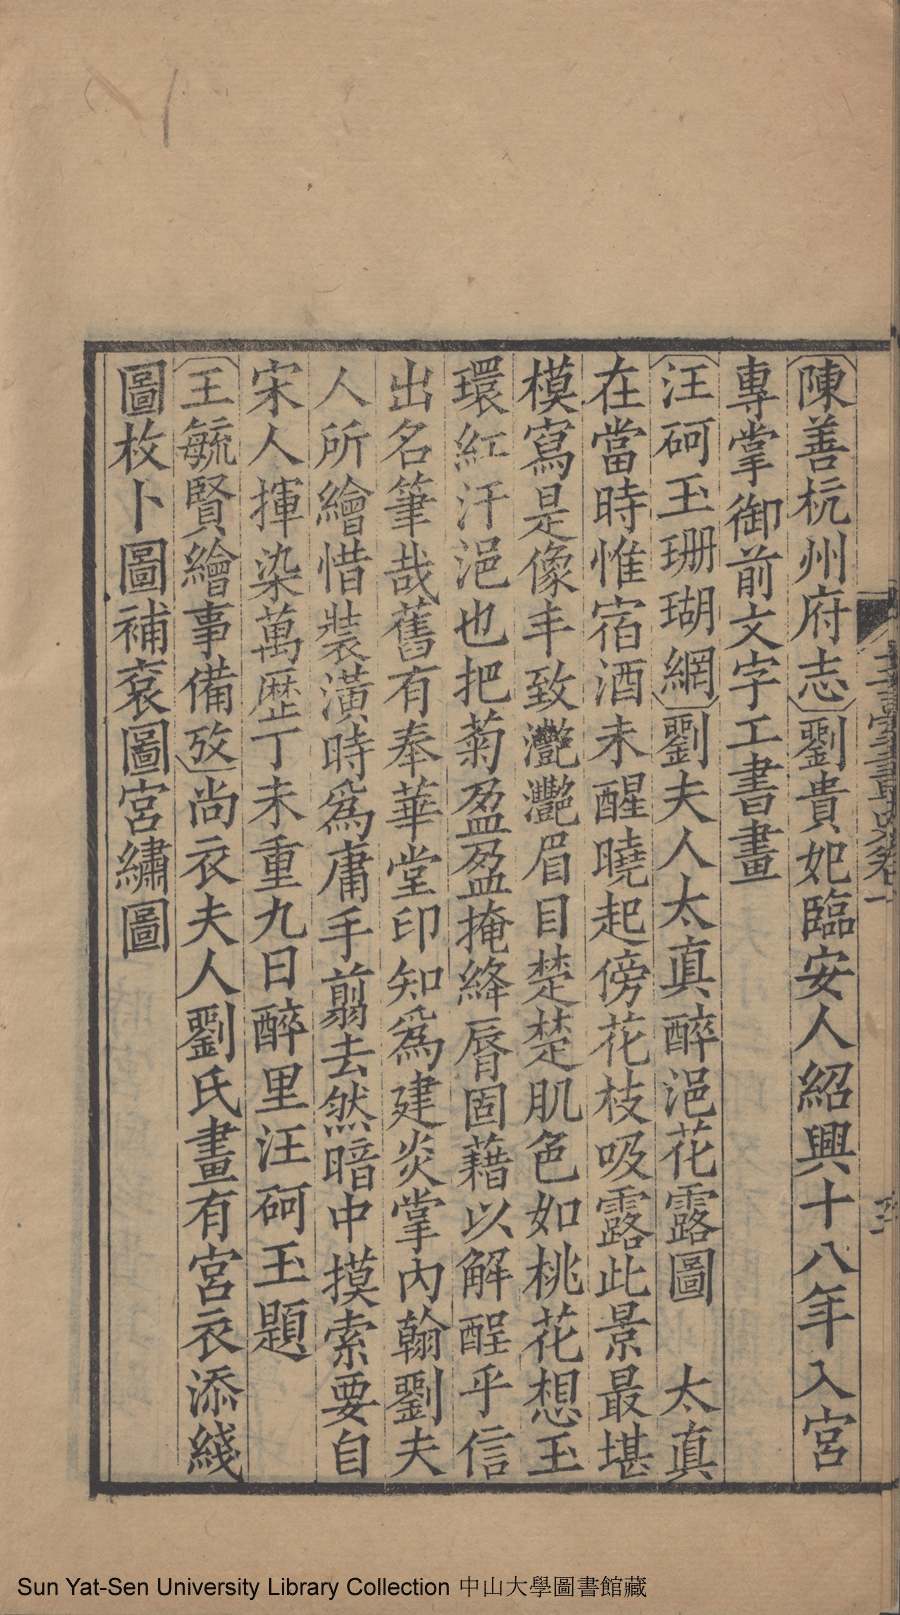 陳善杭州府志劉貴妃臨安人紹興十八年入宮
專掌御前文字工書畫
汪砢玉珊瑚網劉夫人太真醉浥花露圖　太真
在當時惟宿酒未醒曉起傍花枝吸露此景最堪
模寫是像丰致灧灧眉目楚楚肌色如桃花想玉
環紅汗浥也把菊盈盈掩絳唇固藉以解酲乎信
出名筆哉舊有奉華堂印知爲建炎掌內翰劉夫
人所繪惜裝潢時爲庸手翦去然暗中摸索要自
宋人揮染萬歷丁未重九日醉里汪砢玉題
王毓賢繪事備攷尚衣夫人劉氏畫有宮衣添綫
圖枚卜圖補衮圖宮繡圖
玉臺畫史卷一
Sun Yat-Sen University Library Collection 中山大學圖書館藏